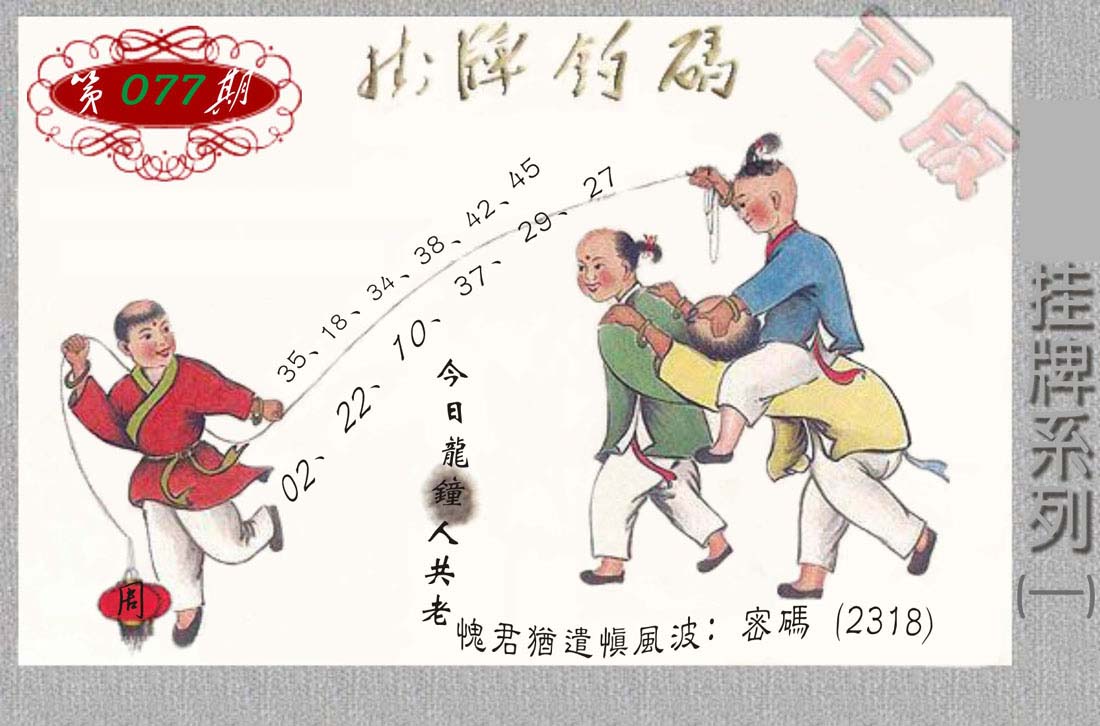 第077期
掛牌釣碼
正版
35、18、34、38、42、45
02、22、10、37、29、27
今日龍鐘人共老
愧君猶遣慎風波：密碼（2318）
周
挂牌系列(一)